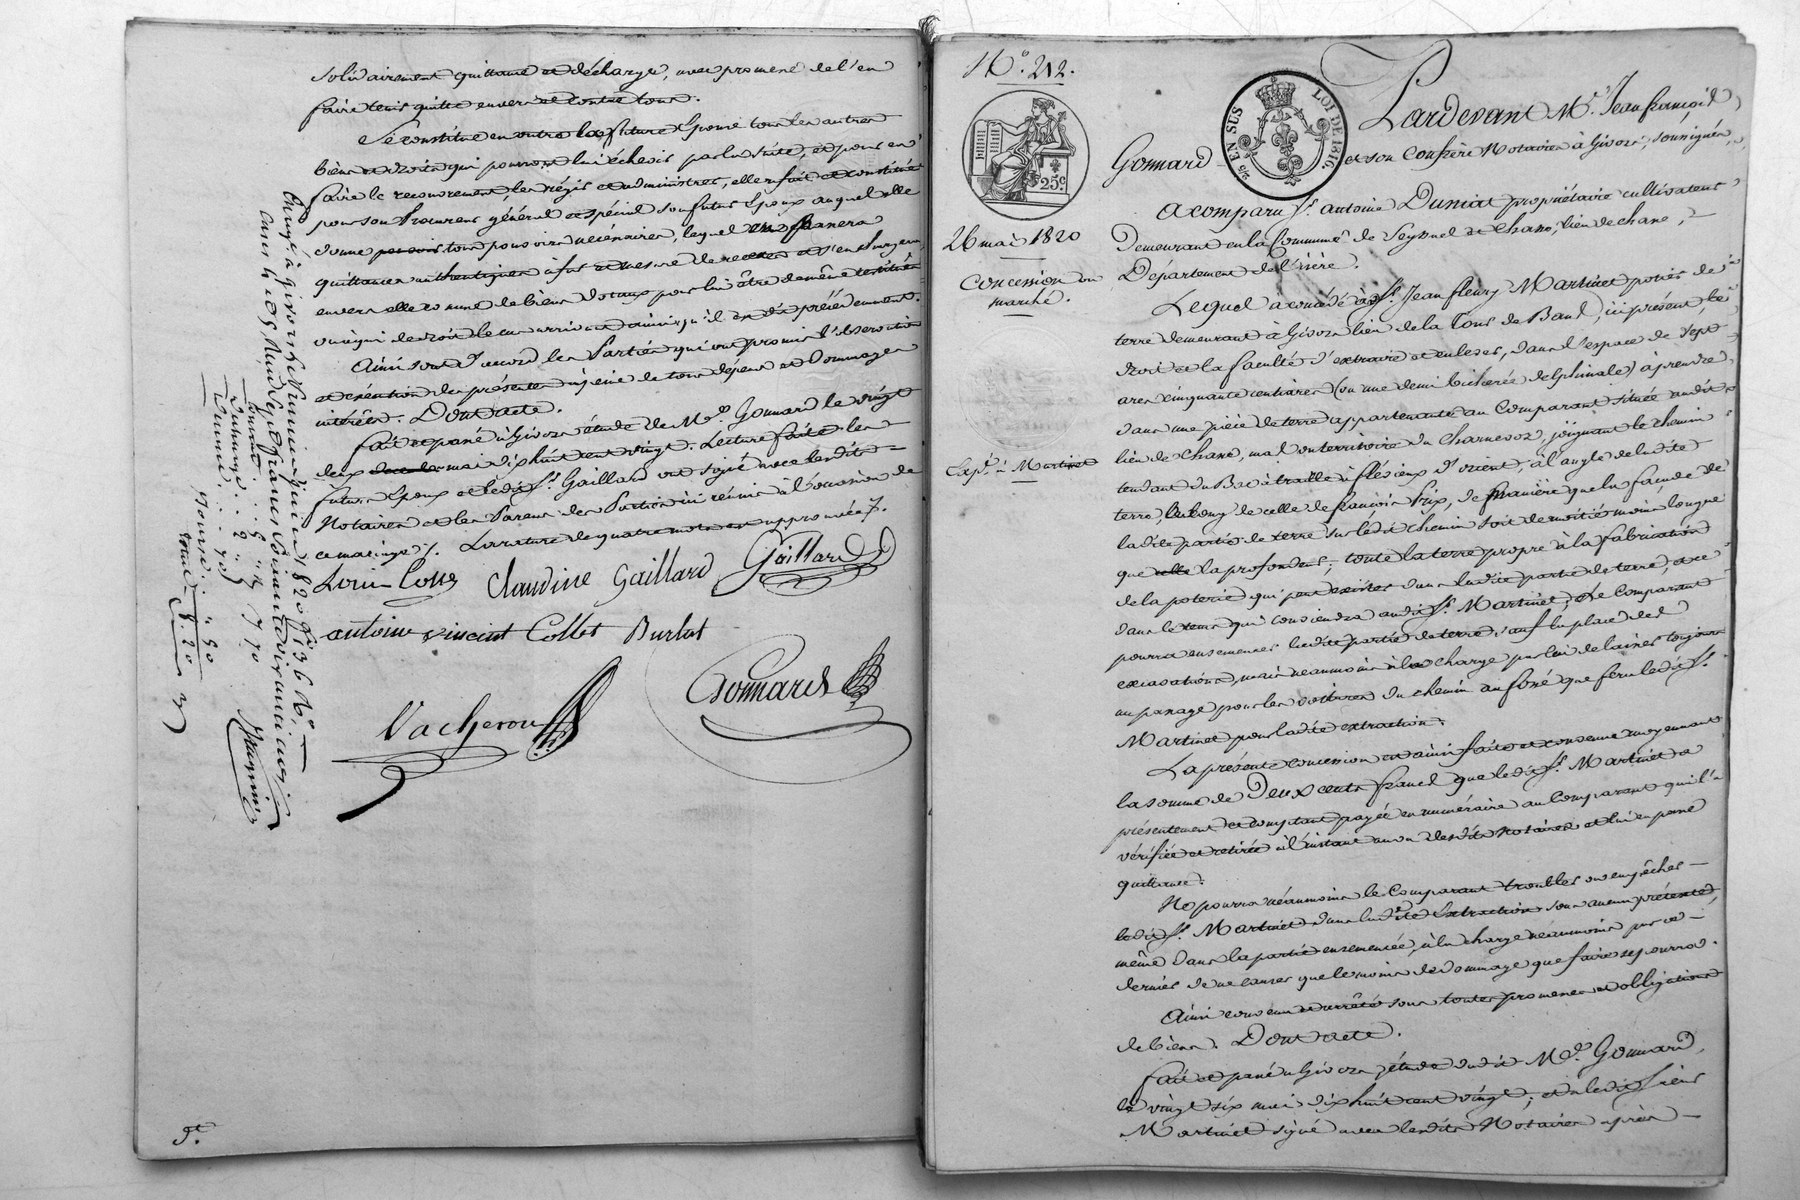 solidairement quittance et décharge, avec promesse de l'en
faire tenir quitte envers et contre tous.
Se constitue en outre la future Epouse tous les autres
biens et droits qui pourront lui échoir par la suite, et pour en
faire le recouvrement, les régir et administrer, elle en fait et constitue
pour son Procureur général et spécial son futur Epoux auquel elle
donne tous pouvoirs nécessaires, lequel en passera
quittances authentiques à fur et mesure de recettes et s'en chargera
envers elle comme de biens dotaux pour lui être de même restitués
ou à qui de droit le cas arrivant ainsi qu'il est dit précédemment.
Ainsi sont d'accord les Parties qui ont promis l'observation
et exécution des présentes à peine de tous dépens et dommages
intérêts. Dont acte.
Fait et passé à Givors étude de Me. Gonnard le vingt
deux mai dix huit cent vingt. Lecture faite les
futurs Epoux et ledit Sr. Gaillard ont signé avec lesdits
Notaires et les Parens des Parties ici réunis à l'occasion de
ce mariage /. La rature de quatre mots est approuvée /.
Louis Collet Claudine Gaillard Gaillard
antoine vincent Collet Burlat
Vacheron Gonnard
Enregé à Givors le trente un mai 1820 fo 136 Vo
Reçu
9e.
No. 212.
EN SUS LOI DE 1816
25c
26 mai 1820
Concession ou
marché.
Expd. à Martinet
Pardevant Me. Jean françois
Gonnard et son Confrère Notaires à Givors, soussignés,
a comparu Sr. antoine Duniat propriétaire cultivateur
Demeurant en la Commune de Seyssuel et Chane, lieu de chane,
Département de l'isère.
Lequel a concédé à Sr. Jean fleury Martinet potier de
terre demeurant à Givors lieu de la Tour de Band, ici présent, le
droit et la faculté d'extraire et enlever, dans l'espace de sept
ares cinquante centiares (ou une demi bicherée delphinale) à prendre
dans une pièce de terre appartenante au Comparant située audit
lieu de Chane, mas ou territoire du Charnevoz, joignant le chemin
tendant du Bac à traille à flévieux d'orient, à l'angle de ladite
terre, le long de celle de françois Prix, de manière que la façade de
ladite partie de terre sur ledit chemin soit de moitié moins longue
que la profondeur, toute la terre propre à la fabrication
de la poterie qui peut exister dans ladite partie de terre, et ce
dans le tems qui conviendra audit Sr. Martinet; Le Comparant
pourra ensemencer ladite partie de terre, sauf la place des
excavations, mais néanmoins à la charge par lui de laisser toujours
un passage pour les voitures du chemin au fossé que fera ledit Sr.
Martinet pour ladite extraction.
La présente concession est ainsi faite et consentie moyennant
la somme de Deux cents francs que ledit Sr. Martinet a
présentement et comptant payée en numéraire au Comparant qui l'a
vérifiée et retirée à l'instant au vu desdits Notaires et lui en passe
quittance.
Ne pourra néanmoins le Comparant troubler ou empêcher
ledit Sr. Martinet dans ladite Extraction sous aucun prétexte,
même dans la partie ensemencée, à la charge néanmoins par ce
dernier de ne causer que le moins de dommage que faire se pourra.
Ainsi convenu et arrêté sous toutes promesses et obligations
de biens. Dont acte.
fait et passé à Givors, étude dudit Me. Gonnard,
le vingt six mai dix huit cent vingt; et a ledit Sieur
Martinet signé avec lesdits Notaires après